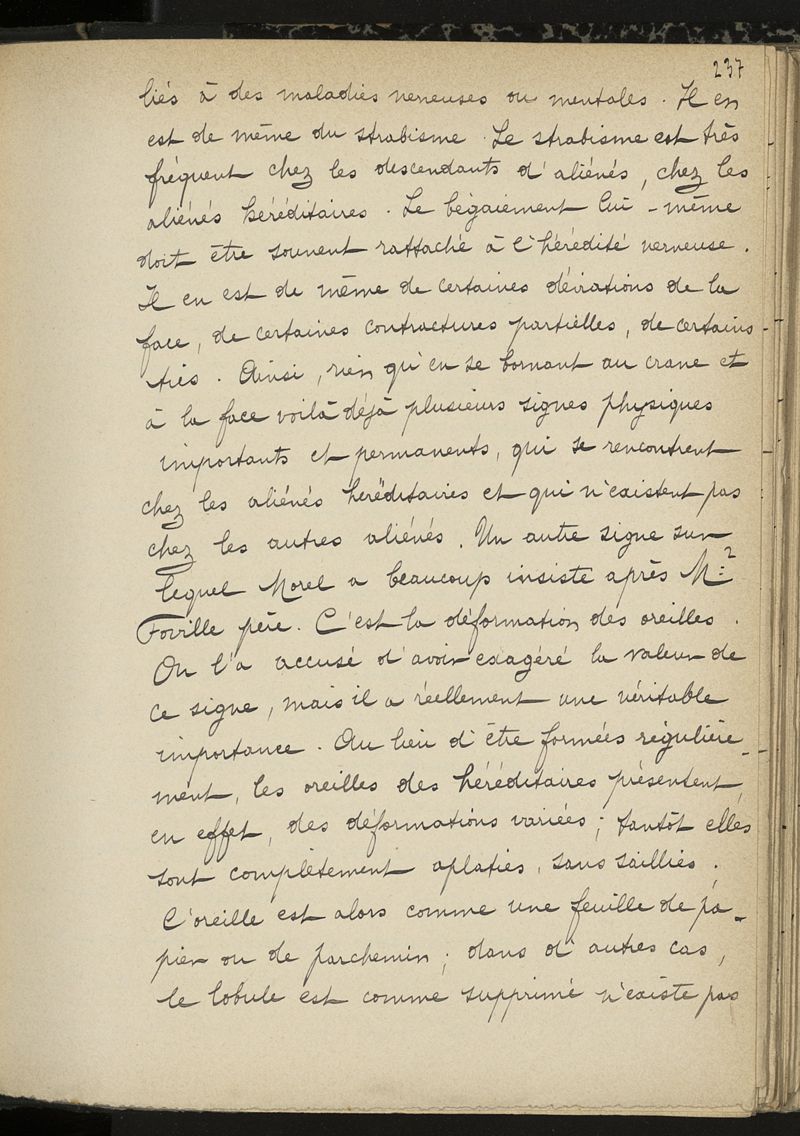 237
liés à des maladies nerveuses ou mentales. Il en
est de même du strabisme. Le strabisme est très
fréquent chez les descendants d'aliénés, chez les
aliénés héréditaires. Le bégaiement lui-même
doit être souvent rattaché à l'hérédité nerveuse.
Il en est de même de certaines déviations de la
face, de certaines contractures partielles, de certains
tics. Ainsi, rien qu'en se bornant au crane et
à la face voilà déjà plusieurs signes physiques
importants et permanents, qui se rencontrent
chez les aliénés héréditaires et qui n'existent pas
chez les autres aliénés. Un autre signe sur
lequel Morel a beaucoup insisté après Mr
Foville père. C'est la déformation des oreilles.
On l'a accusé d'avoir exagéré la valeur de
ce signe, mais il a réellement une véritable
importance. Au lieu d'être formées régulière-
ment, les oreilles des héréditaires présentent,
en effet, des déformations variées; tantôt elles
sont complètement aplaties, sans saillies.
L'oreille est alors comme une feuille de pa-
pier ou de parchemin; dans d'autres cas,
le lobule est comme supprimé n'existe pas